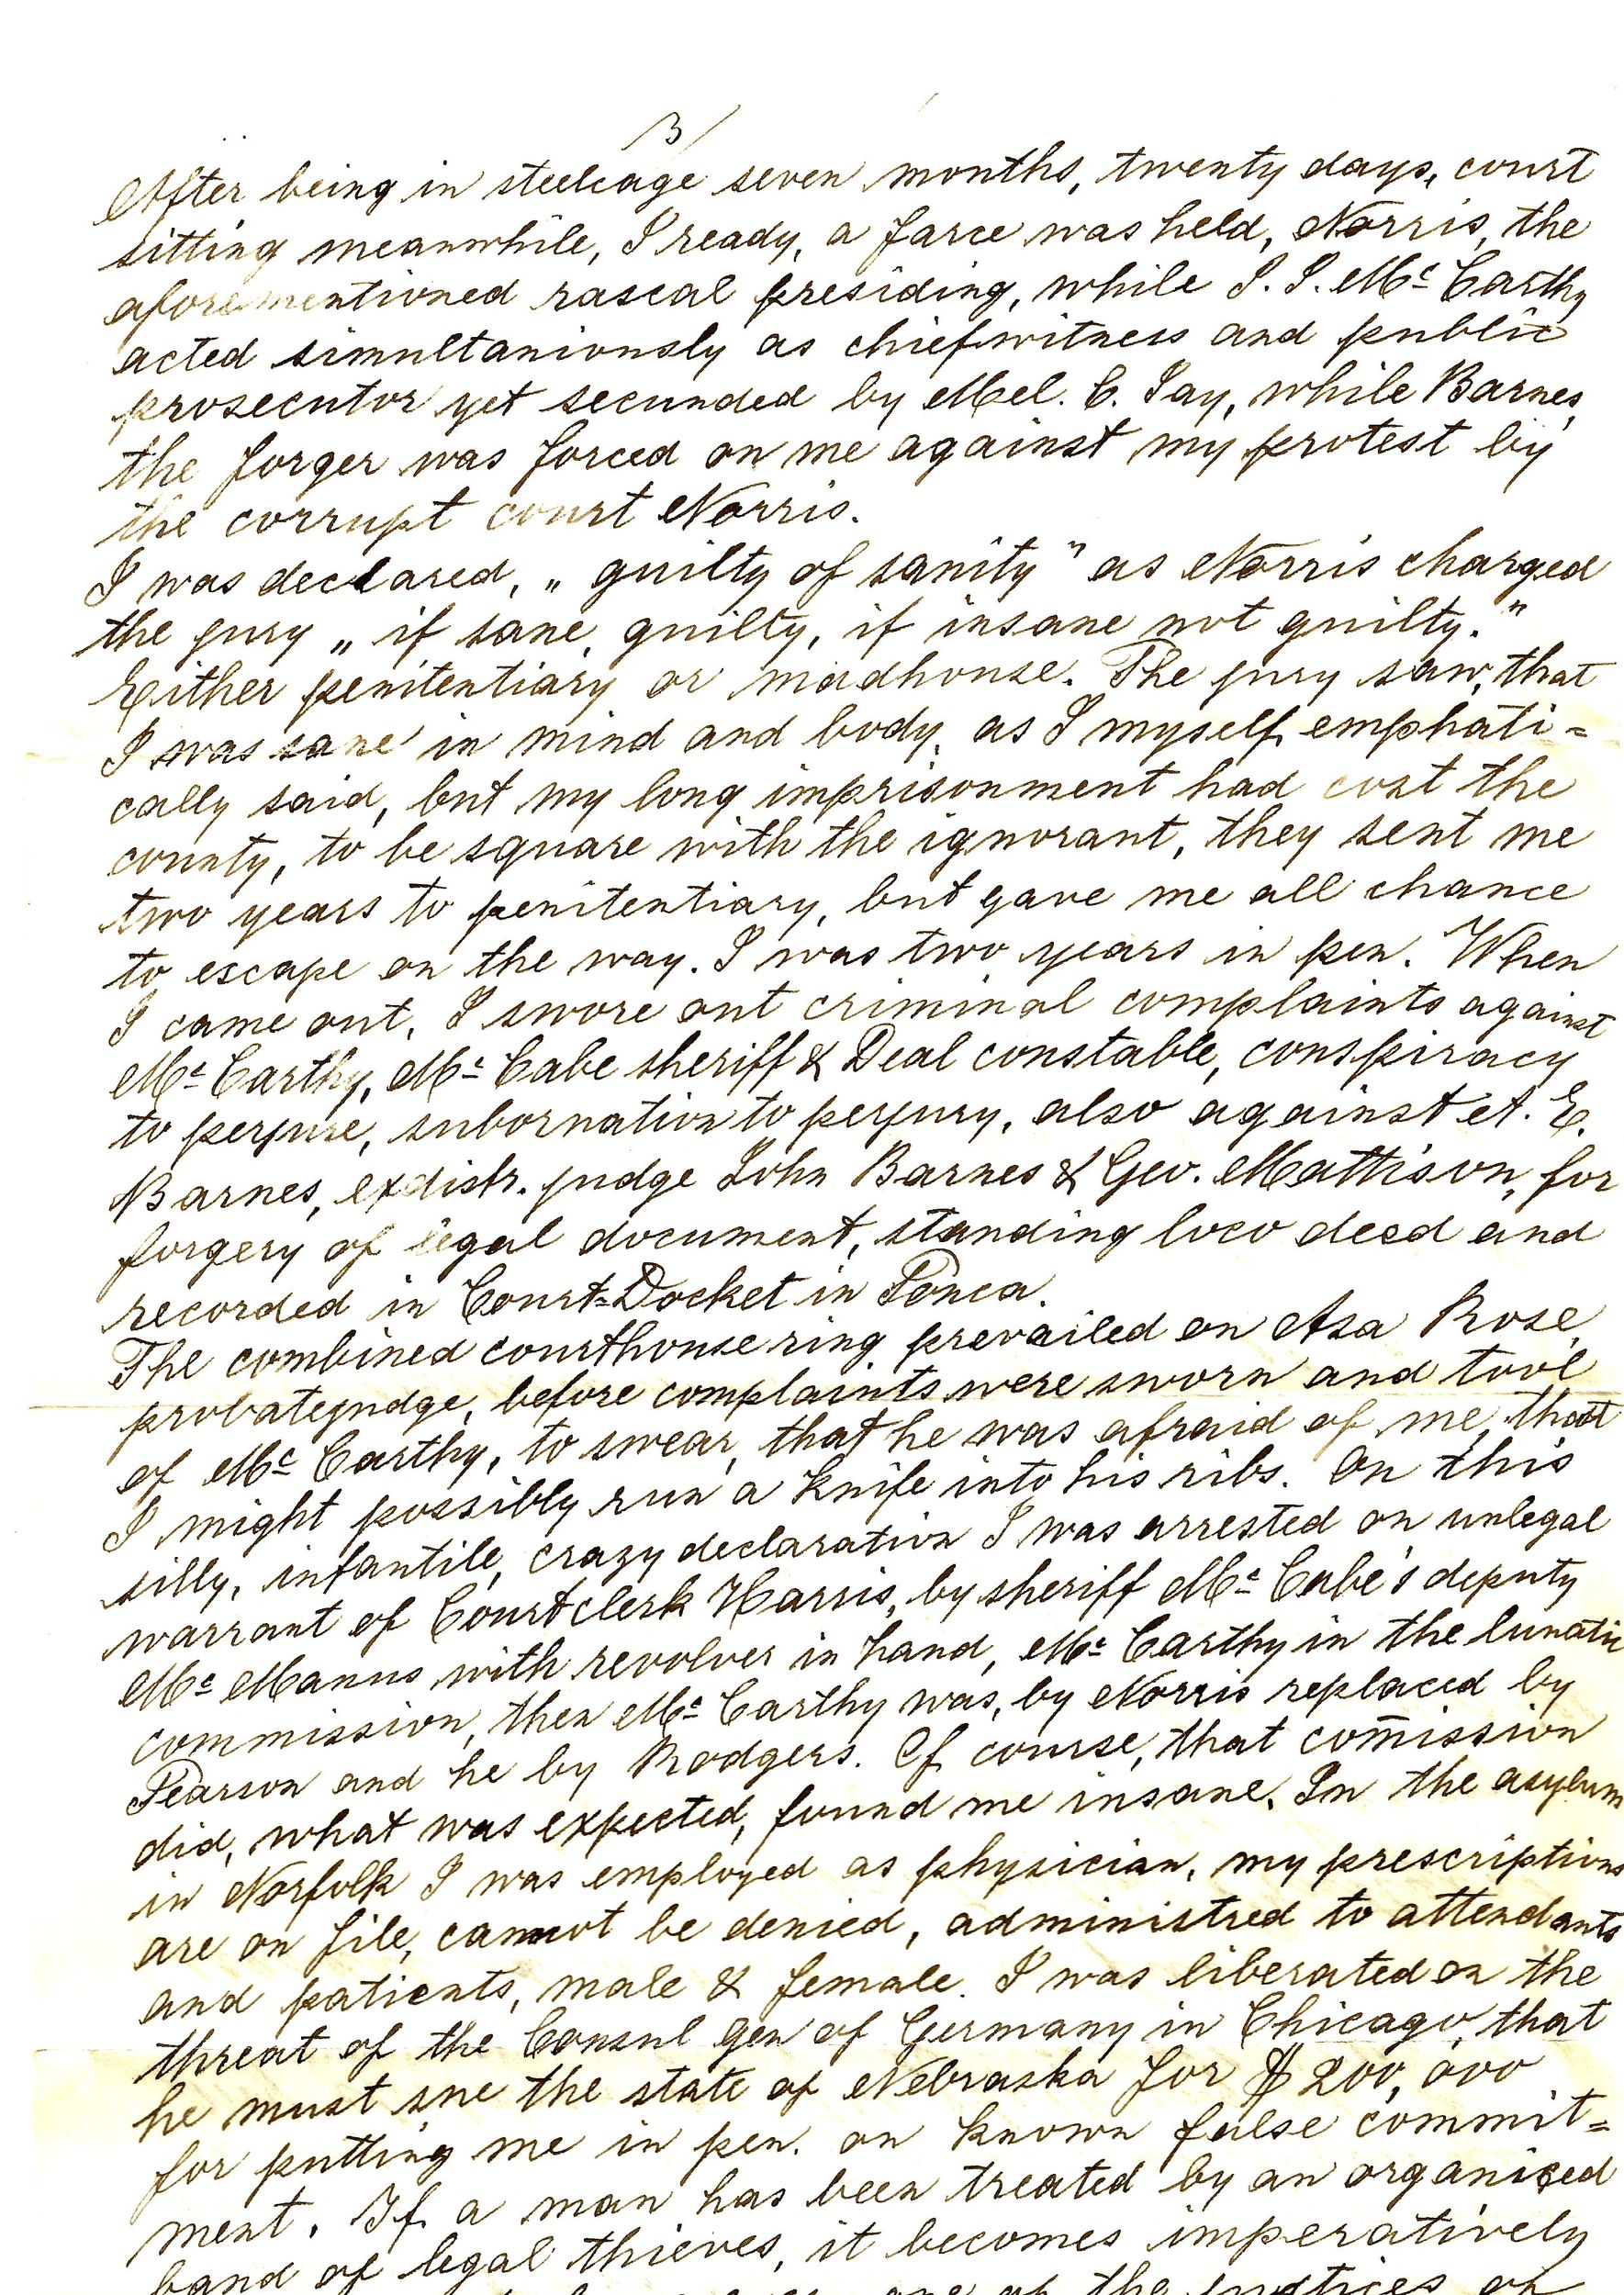 3/
After being in steelcage seven months, twenty days, court
sitting meanwhile, I ready, a farce was held, Norris, the
aforementioned rascal presiding, while J. J. Mc Carthy
acted simultaniously as chiefwitness and public
prosecutor yet secunded by Mel. C. Jay, while Barnes,
the forger was forced on me against my protest by
the corrupt court Norris.
I was declared, „guilty of sanity" as Norris charged
the jury „if sane, guilty, if insane not guilty."
Either penitentiary or madhouse. The jury saw, that
I was sane in mind and body, as I myself emphati=
cally said, but my long imprisonment had cost the
county, to be square with the ignorant, they sent me
two years to penitentiary, but gave me all chance
to escape on the way. I was two years in pen. When
I came out, I swore out criminal complaints against
Mc Carthy, Mc Cabe sheriff & Deal constable, conspiracy
to perjure, subornation to perjury, also against A. E.
Barnes, exdistr. judge John Barnes & Geo. Mattison, for
forgery of legal document, standing loco deed and
recorded in Court=Docket in Ponca.
The combined courthouse ring prevailed on Asa Rose,
probatejudge, before complaints were sworn and tool
of Mc Carthy, to swear, that he was afraid of me, that
I might possibly run a knife into his ribs. On this
silly, infantile, crazy declaration I was arrested on unlegal
warrant of Courtclerk Harris, by sheriff Mc Cabe's deputy
Mc Manus with revolver in hand, Mc Carthy in the lunatic
commission, then Mc Carthy was, by Norris replaced by
Pearson and he by Rodgers. Of course, that com̄ission
did, what was expected, found me insane. In the asylum
in Norfolk I was employed as physician, my prescriptions
are on file, cannot be denied, administred to attendants
and patients, male & female. I was liberated on the
threat of the Consul Gen of Germany in Chicago, that
he must sue the state of Nebraska for $200,000
for putting me in pen. on known false commit=
ment. If a man has been treated by an organised
band of legal thieves, it becomes imperatively
one of the justices of